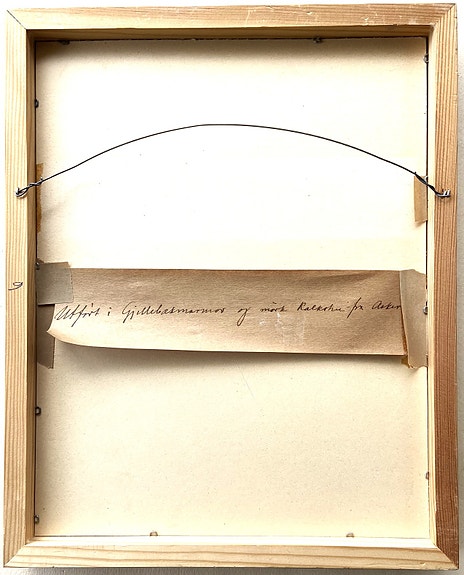 Utført i Gjellebekmarmor og mørk Kalksten fra Asker